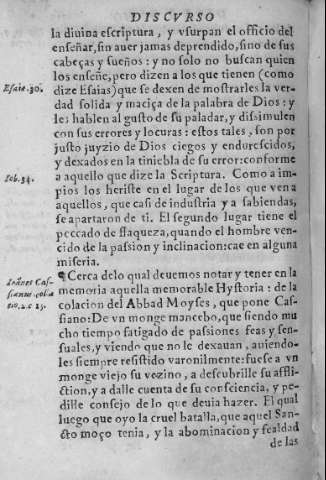 DISCVRSO
la diuina escriptura, y vsurpan el officio del
enseñar, sin auer jamas deprendido, sino de sus
cabeças y sueños : y no solo no buscan quien
los enseñe, pero dizen a los que tienen (como
Esaie.30.
dize Esaias) que se dexen de mostrarles la ver-
dad solida y maciça de la palabra de Dios : y
les hablen al gusto de su paladar, y dissimulen
con sus errores y locuras : estos tales, son por
justo juyzio de Dios ciegos y endurescidos,
y dexados en la tiniebla de su error: conforme
Iob.34.
a aquello que dize la Scriptura. Como a im-
pios los heriste en el lugar de los que ven a
aquellos, que casi de industria y a sabiendas,
se apartaron de ti. El segundo lugar tiene el
peccado de flaqueza, quando el hombre ven-
cido de la passion y inclinacion: cae en alguna
miseria.
¶ Cerca delo qual deuemos notar y tener en la
Ioānes Cas-
sianus. colla
tio.2.c 13.
memoria aquella memorable Hystoria : de la
colacion del Abbad Moyses, que pone Cas-
siano: De vn monge mancebo, que siendo mu
cho tiempo fatigado de passiones feas y sen-
suales, y viendo que no le dexauan, auiendo-
les siempre resistido varonilmente: fuese a vn
monge viejo su vezino, a descubrille su affli-
ction, y a dalle cuenta de su consciencia, y pe-
dille consejo de lo que deuia hazer. El qual
luego que oyo la cruel batalla, que aquel San-
cto moço tenia, y la abominacion y fealdad
de las